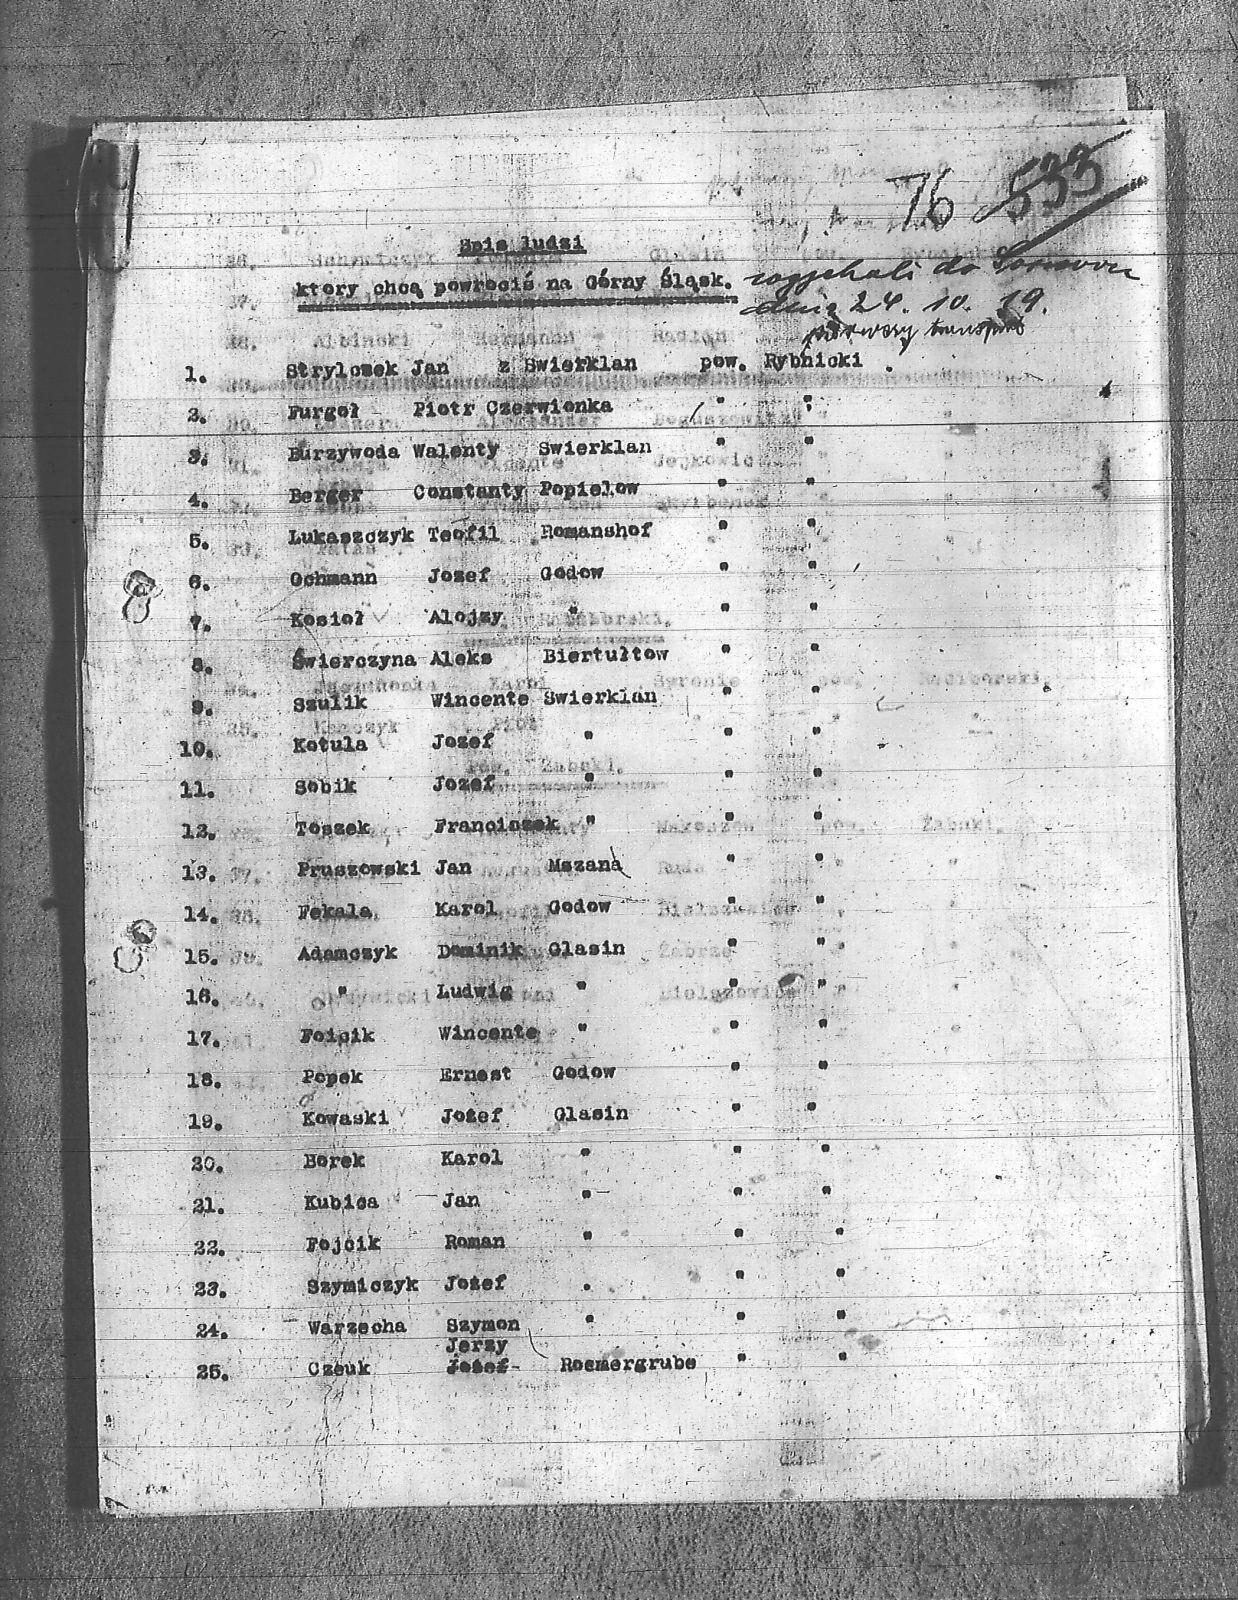 T6 533
Spis ludzi
ktory chcą powrociś na Górny Śląsk. wyjchali do Sosnowu
dnia 24. 10. 19.
pierwszy transport
1. Strylczek Jan z Swierklan pow. Rybnicki .
2. Furgoł Piotr Czerwionka " "
3. Burzywoda Walenty Swierklan " "
4. Berger Constanty Popielow " "
5. Lukaszczyk Teofil Romanshof " "
6. Ochmann Jozef Godow " "
7. Kosioł Alojzy " " "
8. Świerczyna Aleks Biertułtow " "
9. Szulik Wincente Swierklan " "
10. Kotula Jozef " " "
11. Sobik Jozef " " "
12. Toszek Franciszek " " "
13. Pruszowski Jan Mszana " "
14. Fekala Karol Godow " "
15. Adamczyk Dominik Glasin " "
16. " Ludwig " " "
17. Foicik Wincente " " "
18. Popek Ernest Godow " "
19. Kowaski Jozef Glasin " "
20. Borek Karol " " "
21. Kubica Jan " " "
22. Fojcik Roman " " "
23. Szymiczyk Jozef . " "
24. Warzecha Szymon " " "
Jerzy
25. Czeuk Jozef Roemergrube " "